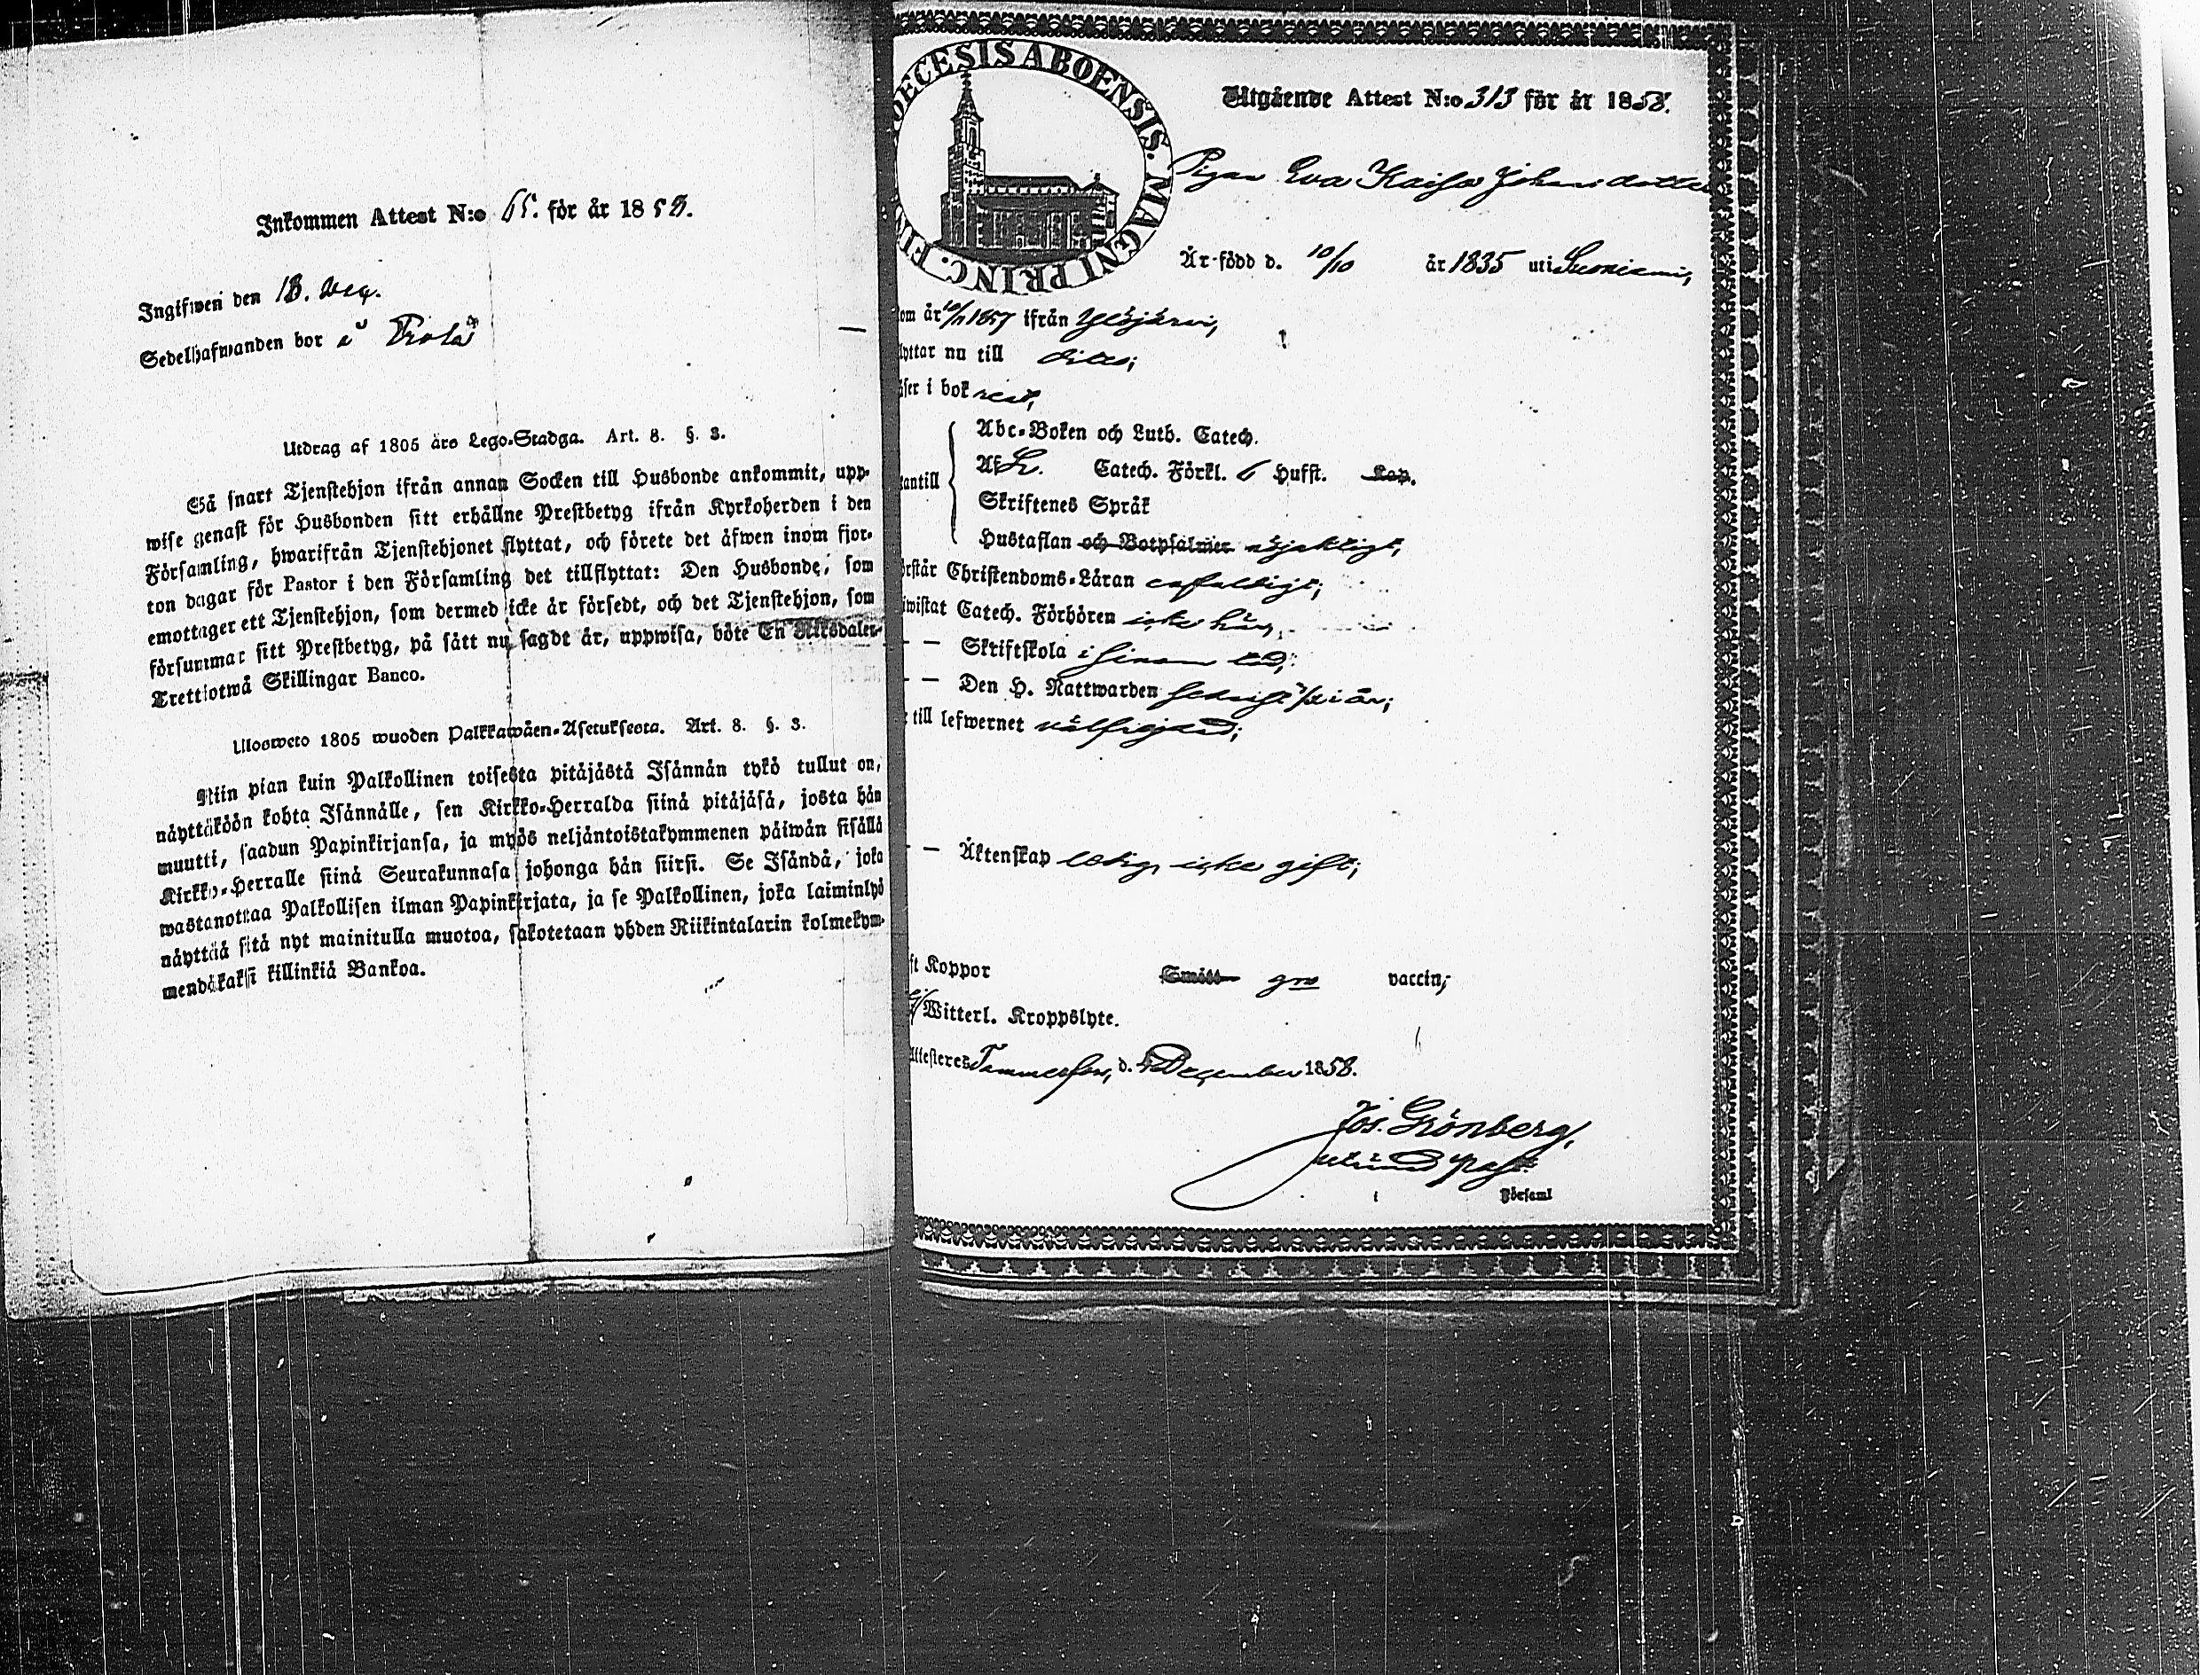 Inkommen Attest N:o 65. för år 1858.
Ingifwen den 18. Dec.
Sedelhafwanden bor i
Utdrag af 1805 års Lego-Stadga. Art. 8. §. 3.
Så snart Tjenstehjon ifrån annan Socken till Husbonde ankommit, upp-
wise genast för Husbonden sitt erhållne Prestbetyg ifrån Kyrkoherden i den
Församling, hwarifrån Tjenstehjonet flyttat, och förete det äfwen inom fjor-
ton dagar för Pastor i den Församling det tillflyttat: Den Husbonde, som
emottager ett Tjenstehjon, som dermed icke är försedt, och det Tjenstehjon, som
försummar sitt Prestbetyg, på sätt nu sagdt är, uppwisa, böte En Riksdaler
Trettiotwå Skillingar Banco.
Ulosweto 1805 wuoden Palkkawäen-Asetuksesta. Art. 8. §. 3.
Niin pian kuin Palkollinen toisesta pitäjästä Isännän tykö tullut on,
näyttäköön kohta Isännälle, sen Kirkko-Herralda siinä pitäjäsä, josta hän
muutti, saadun Papinkirjansa, ja myös neljäntoistakymmenen päiwän sisällä
Kirkko-Herralle siinä Seurakunnasa johonga hän siirsi. Se Isändä, joka
wastanottaa Palkollisen ilman Papinkirjata, ja se Palkollinen, joka laiminlyö
näyttää sitä nyt mainitulla muotoa, sakotetaan yhden Riikintalarin kolmekym-
mendäkaksi killinkiä Bankoa.
DECESIS ABOENSIS. MAGNI PRINC. FIN
Utgående Attest N:o 313 för år 1858.
Pigan Eva Kaisa Johansdotter
Är född d. 10/10 år 1835 uti Suoniemi,
om år 1857 ifrån Ylöjärvi,
lyttar nu till ditto;
äser i bok rent,
Abc-Boken och Luth. Catech.
Af Catech. Förkl. 6 Hufst. Kap.
antill
Skriftenes Språk
Hustaflan och Botpsalmer nöjaktigt,
rstår Christendoms-Läran enfaldigt;
iwistat Catech. Förhören icke här,
— Skriftskola i sinom tid;
— — Den H. Nattwarden senast i år;
till lefwernet välfrejdad;
— — Äktenskap ledig, icke gift;
ft Koppor Smått gw vaccin;
ej Witterl. Kroppslyte.
Attesteres Tammerfors, d. December 1858.
Jos. Grönberg,
Past.
i Församl